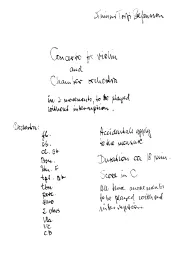 Concerto for violin
and
Chamber orchestra
in 3 movements, to be played
without interruption.
Orchestra:
fl.
Ob.
cl. Bb
Bsn.
Hn. F
tpt. Bb
tbn
perc
2 vlns
Vla
Vc
CB
Accidentals apply
to the measure
Duration ca 18 min.
Score in C
All three movements
to be played without
interruption